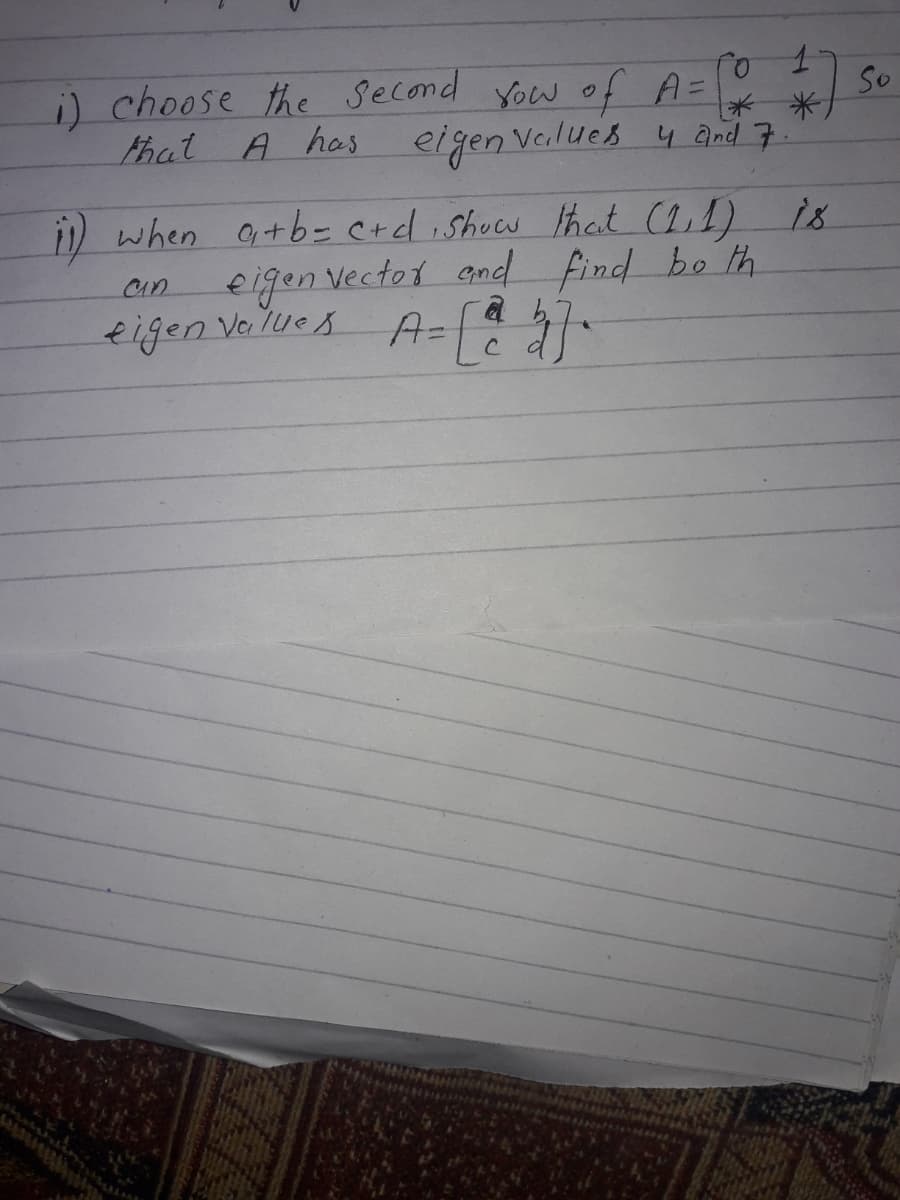 i) choose the second row of A= [0 1 * *] so
that A has eigen values 4 and 7.
ii) when a+b= c+d, show that (1,1) is
an eigen vector and find both
eigen values A= [a b c d].